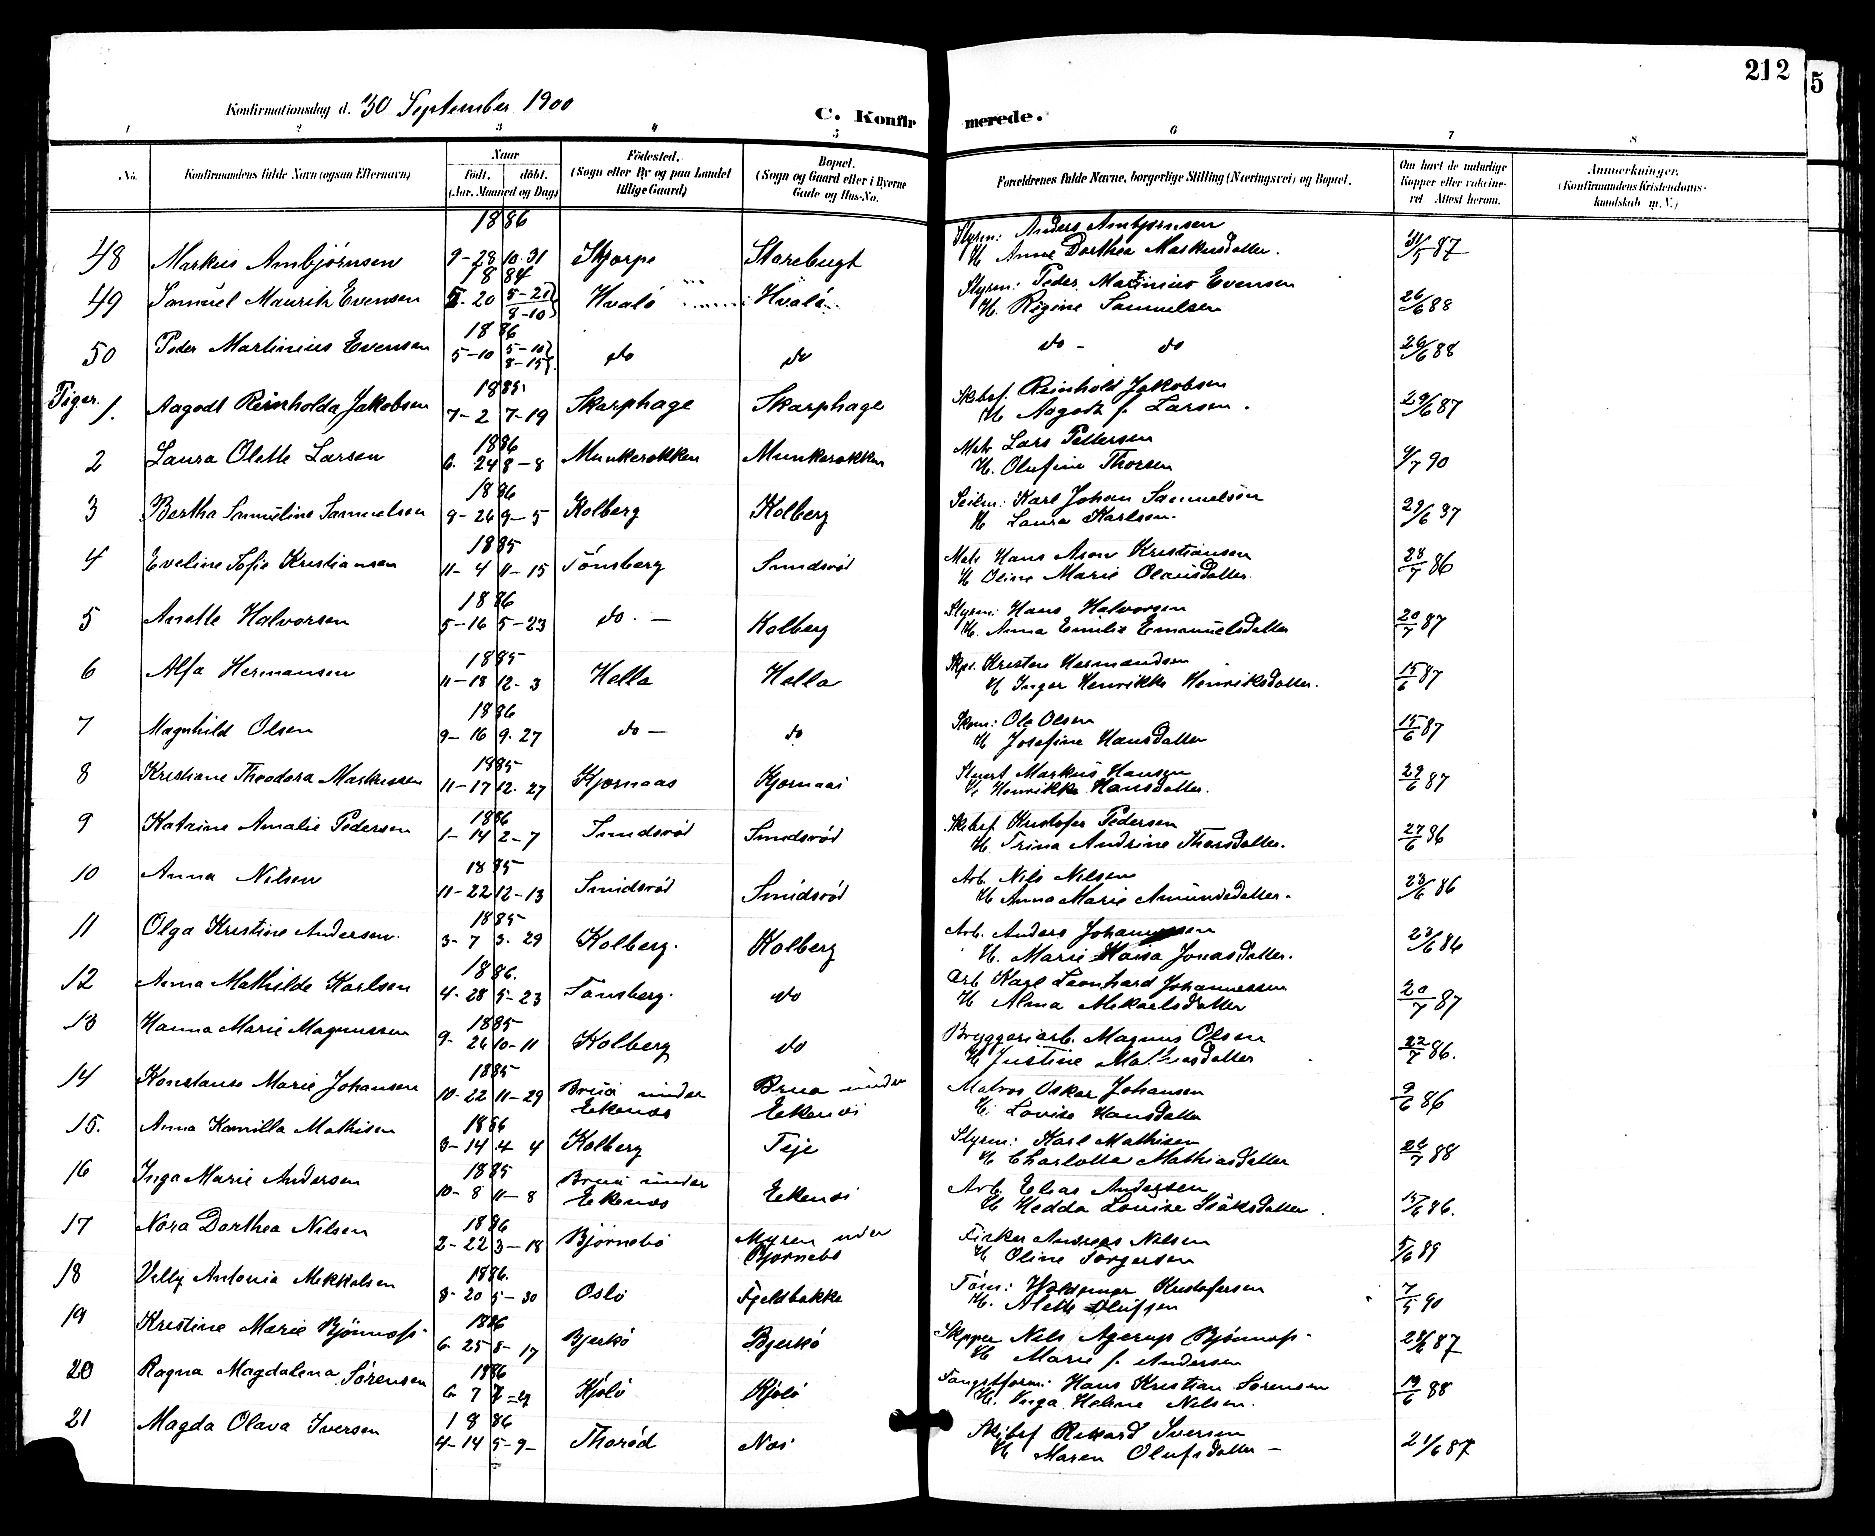 212
5
Konfirmationsdag d. 30 September 1900
C. Konfir merede.
1 2 3 4 5 6 7 8
No. Konfirmandens fulde Navn (ogsaa Efternavn) Naar Födt. döbt. (Aar. Maaned og Dag) Födested. (Sogn eller By og paa Landet tillige Gaard) Bopæl. (Sogn og Gaard eller i Byerne Gade og Hus-No. Forældrenes fulde Navne, borgerlige Stilling (Næringsvei) og Bopæl. Om havt de naturlige Kopper eller vaccineret. Attest herom. Anmerkninger. (Konfirmandens Kristendomskundskab m. V.)
1886 Styrm: Anders Ambjørnsen
48 Markus Ambjörnsen 9-28 10-31 Skjærpe Starebugt H. Anne Dorthea Markusdatter. 31/5 87
1884 Styrm: Peder Matinius Evensen
49 Samuel Mauritz Evensen 5-20 Hvalö Hvalö H. Regine Samuelsen 26/6 88
8-10
1886
50 Peder Martinius Evensen 5-10 5-10 do do do - do 26/6 88
8-15
1885 Skibsf. Reinhold Jakobsen
Piger. 1. Aagodt Reinholda Jakobsen 7-2 7-19 Skarphage Skarphage H. Aagodt f. Larsen. 29/6 87
1886 Matr. Lars Pettersen
2 Laura Olette Larsen 6-24 8-8 Munkerekken Munkerekken H. Olufine Thorsen 90
1886 Seilm: Karl Johan Samuelsen
3 Bertha Samueline Samuelsen 9-26 9-5 Kolberg Kolberg H. Laura Karlsen. 29/6 87
1885 Matr. Hans Aron Kristiansen
4 Eveline Sofie Kristiansen 11-4 11-15 Tönsberg Smidsröd H. Oline Marie Olausdatter 28/7 86
1886 Styrm: Hans Halvorsen
5 Anette Halvorsen 5-16 5-23 do. - Kolberg H. Anna Emilie Emanuelsdatter 20/7 87
1885 Skps. Kristen Hermandsen
6 Alfa Hermansen 11-18 12-3 Hella Hella H. Inger Henrikke Henriksdatter. 15/6 87
1886 Skom: Ole Olsen
7 Magnhild Olsen 9-16 9-27 do - do H. Josefine Hansdatter 15/6 87
1885 Stuert Markus Hansen
8 Kristiane Theodora Markussen 11-17 12-27 Kjærnaas Kjærnaas H. Henrikke Hansdatter. 29/6 87
1886 Skibsf. Kristofer Pedersen
9 Katrine Amalie Pedersen 1-14 2-7 Smidsröd Smidsröd H. Trina Andrine Thorsdatter. 27/6 86
1885 Arb. Nils Nilsen
10 Anna Nilsen 11-22 12-13 Smidsröd Smidsröd H. Anna Marie Amundsdatter. 23/6 86
1885 Arb. Anders Johannessen
11 Olga Kristine Andersen. 3-7 3-29 Kolberg. Kolberg H. Marie Jonasdatter. 23/6 86
1886. Arb. Karl Leonhard Johannessen
12 Anna Mathilde Karlsen 4-28 5-23 Tönsberg. do H. Alma Mikaelsdatter 20/7 87
1885 Bryggeriarb. Magnus Olsen
13 Hanna Marie Magnussen 9-26 10-11 Kolberg do H. Justine Mathiasdatter 22/7 86.
1885 Matros Oskar Johansen
14 Konstanse Marie Johansen 10-22 11-29 Brua under Ekenæs Brua under Ekenæs H. Lovise Hansdatter 9/6 86
1886 Styrm: Karl Mathisen
15. Anna Kamilla Mathisen 3-14 4 4 Kolberg Teje H. Charlotte Mathiasdatter 88
1885 Arb. Elias Andersen
16 Inga Marie Andersen 10-8 11-8 Brua under Ekenæs Ekenæs H. Hedda Louise Isaksdatter. 86.
1886 Fisker Andreas Nilsen
17 Nora Dorthea Nilsen 2-22 3-18 Björnebö Myren under Björnebö H. Oline Torgersen 5/6 89
1886. Töm: Waldemar Kristofersen
18 Villy Antonia Mikkelsen 3-20 5-30 Oslö Fjeldbakke H. Alette Olufsen 7/5 90
1886 Skipper Nils Agerup Bjönness
19 Kristine Marie Bjönness 6-25 8-17 Bjerkö Bjerkö H. Marie f. Andersen 87
1886 Fangstform: Hans Kristian Sörensen
20 Ragna Magdalena Sörensen 6-7 Kjölö Kjölö H. Inga Helene Nilsen. 19/6 88
1886 Skibsf Rikard Iversen
21 Magda Olava Iversen 4-14 5-9- Thoröd Næs H. Maren Olufsdatter - 21/6 87